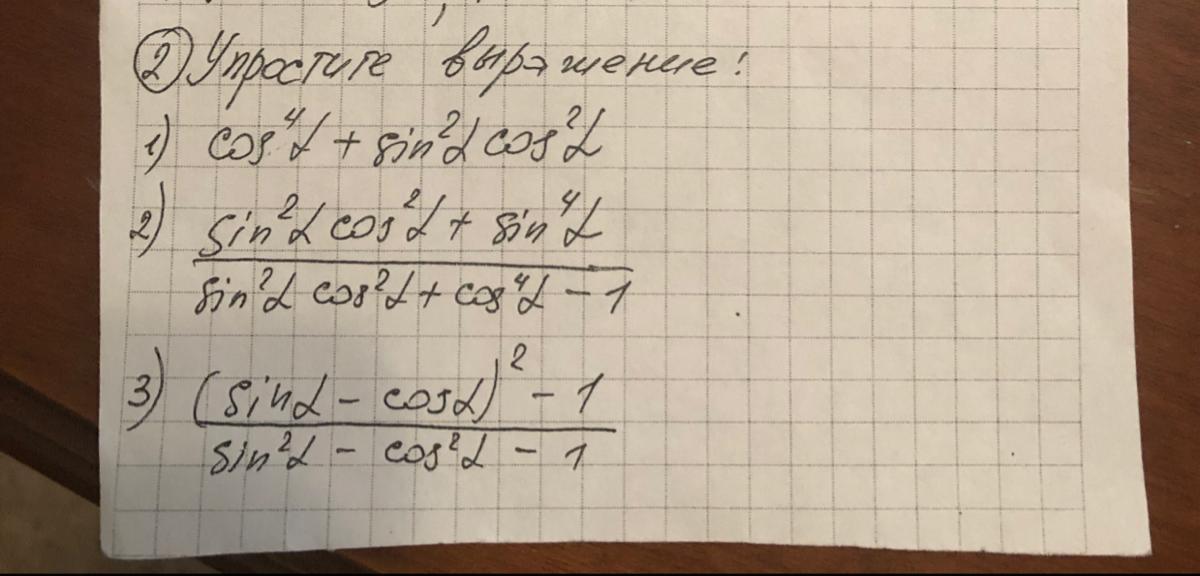 ② Упростите выражение:
1) cos⁴α + sin²α cos²α
2) sin²α cos²α + sin⁴α
sin²α cos²α + cos⁴α - 1
3) (sinα - cosα)² - 1
sin²α - cos²α - 1